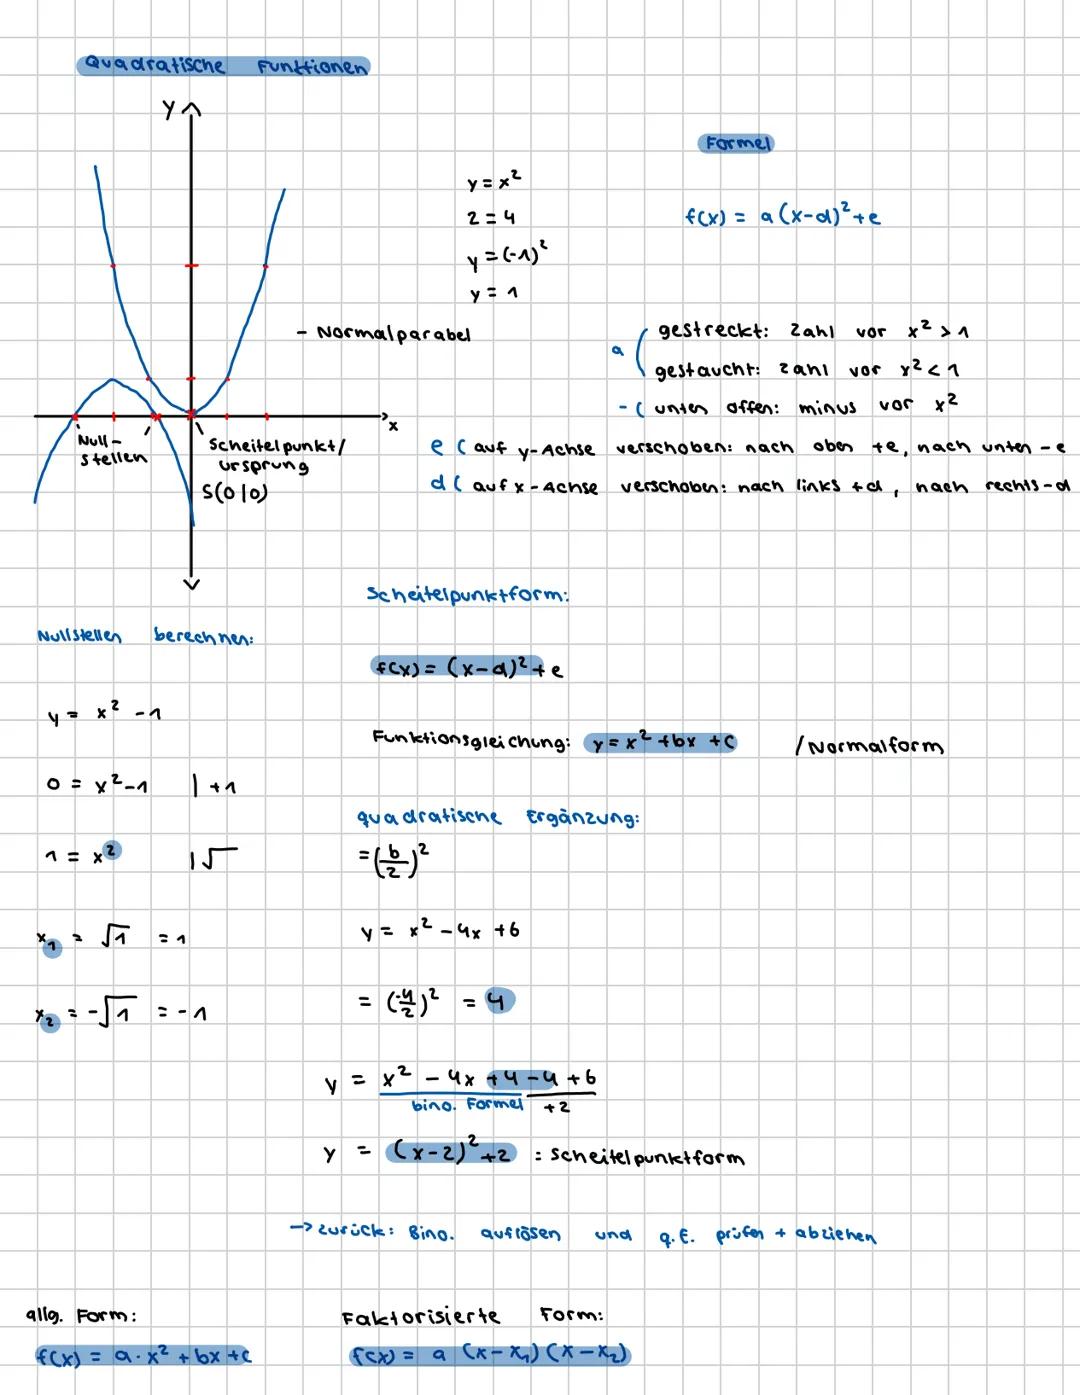 Quadratische Funktionen
y
Formel
y = x²
2 = 4
y = (-1)²
y = 1
f(x) = a(x-d)²+e
- Normalparabel
a ( gestreckt: Zahl vor x² > 1
gestaucht: Zahl vor x² < 1
- ( unten offen: minus vor x²
x
Null-
stellen
Scheitelpunkt/
ursprung
S(0|0)
e ( auf y-Achse verschoben: nach oben +e, nach unten -e
d ( auf x-Achse verschoben: nach links +d, nach rechts -d
Scheitelpunktform:
f(x) = (x-d)²+e
Funktionsgleichung: y = x² +bx +c /Normalform
Nullstellen berechnen:
y = x² -1
0 = x²-1 | +1
1 = x² |√
x₁ = √1 = 1
x₂ = -√1 = -1
quadratische Ergänzung:
=(b/2)²
y = x² -4x +6
= (-4/2)² = 4
y = x² - 4x +4 -4 +6
bino. Formel +2
y = (x-2)²+2 : Scheitelpunktform
-> zurück: Bino. auflösen und q.E. prüfen + abziehen
allg. Form:
f(x) = a·x² + bx +c
Faktorisierte Form:
f(x) = a (x-x₁)(x-x₂)